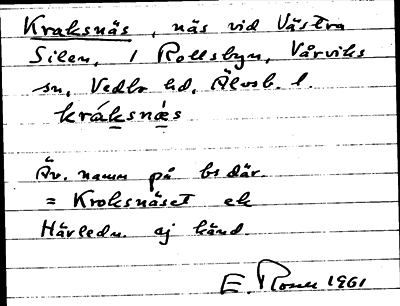 Kraksnäs, näs vid Västra
Silen, i Rollsbyn, Vårviks
sn, Vedbo hd, Älvsb. l.
kráksnæ̀s
Äv. namn på bs där
= Kroksnäset ek
Härledn. ej känd.
E. Rosen 1961